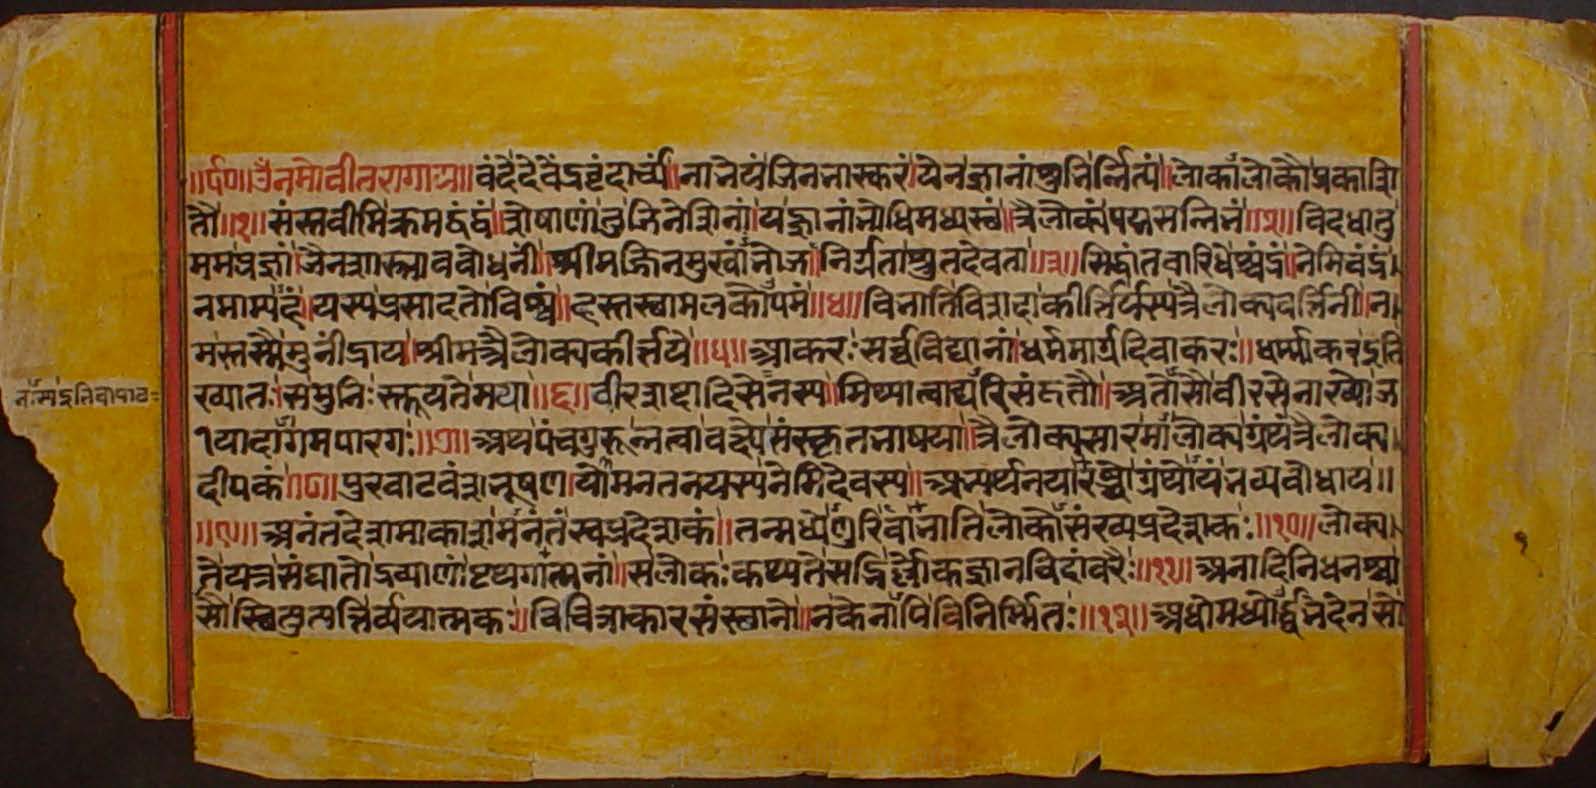 ॥र्द०॥ ॐनमोवीतरागाय॥ वंदेदेवेंद्रवृंदार्च्यं॥नाभेयंजिनभास्करं।येनज्ञानांशुभिर्नित्यं॥लोकालोकौप्रकाशि
तौ॥१॥संस्तवीमिक्रमद्वंद्वं॥शेषाणांतुजिनेशिनां।यज्ज्ञानांभोधिमध्यस्थं॥त्रैलोक्यंपद्मसन्निभं॥२॥विदधातु
ममप्रज्ञां॥जैनशास्त्राववोधनी॥श्रीमज्जिनमुखांभोज॥निर्गताश्रुतदेवता॥३॥सिद्धांतवारिधेश्चंद्रं॥नेमिचंद्रं
नमाम्यहं।यस्यप्रसादतोविश्वं॥हस्तस्थामलकोपमं॥४॥विभातिविशदाकीर्त्तिर्यस्यत्रैलोक्यवर्त्तिनी॥न
मस्तस्मैमुनींद्राय॥श्रीमत्रैलोक्यकीर्त्तये॥५॥आकरःसर्वविद्यानां॥धर्ममार्गदिवाकरः॥धर्म्माकर
ख्यातःसमुनिःस्तूयतेमया॥६॥वीरदृष्टादिसेनस्य॥मिथ्यात्वाद्यरिसंहतौ॥अतोसौवीरसेनाख्योज
१यादागमपारगः॥७॥अथपंचगुरून्नत्वावक्ष्येसंस्कृतभाषया॥त्रैलोक्यसारमालोक्यग्रंथंत्रैलोक्य
दीपकं॥८॥पुरवाटवंशभूषण।योमनतनयस्यनेमिदेवस्य॥अभ्यर्थनया ग्रंथोयंभव्यवोधाय॥
॥९॥अनंतदेशमाकाशमनंतंस्वप्रदेशकं॥तन्मध्ये भातिलोकोसंख्यप्रदेशकः॥१०॥लोक्य
तेयत्रसंघातोद्रव्याणांपृथगात्मनां॥सलोकःकथ्यतेसद्भिर्लोकज्ञानविदांवरैः॥११॥अनादिनिधनश्चा
सौस्थित्युत्पत्तिर्व्ययात्मकः॥विविधाकारसंस्थानो॥नकेनापिविनिर्म्मितः॥१२॥अधोमध्योर्द्ध्वभेदेनसो